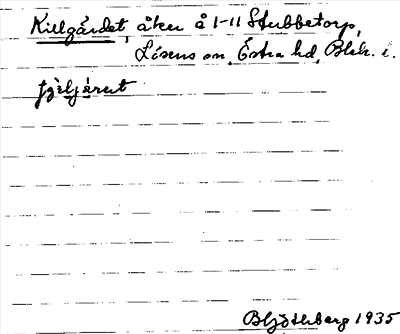 Killgärdet, åker å 1-11 Stubbetorp,
Lösens sn. Östra hd, Blek. l.
B Hjöthberg 1935